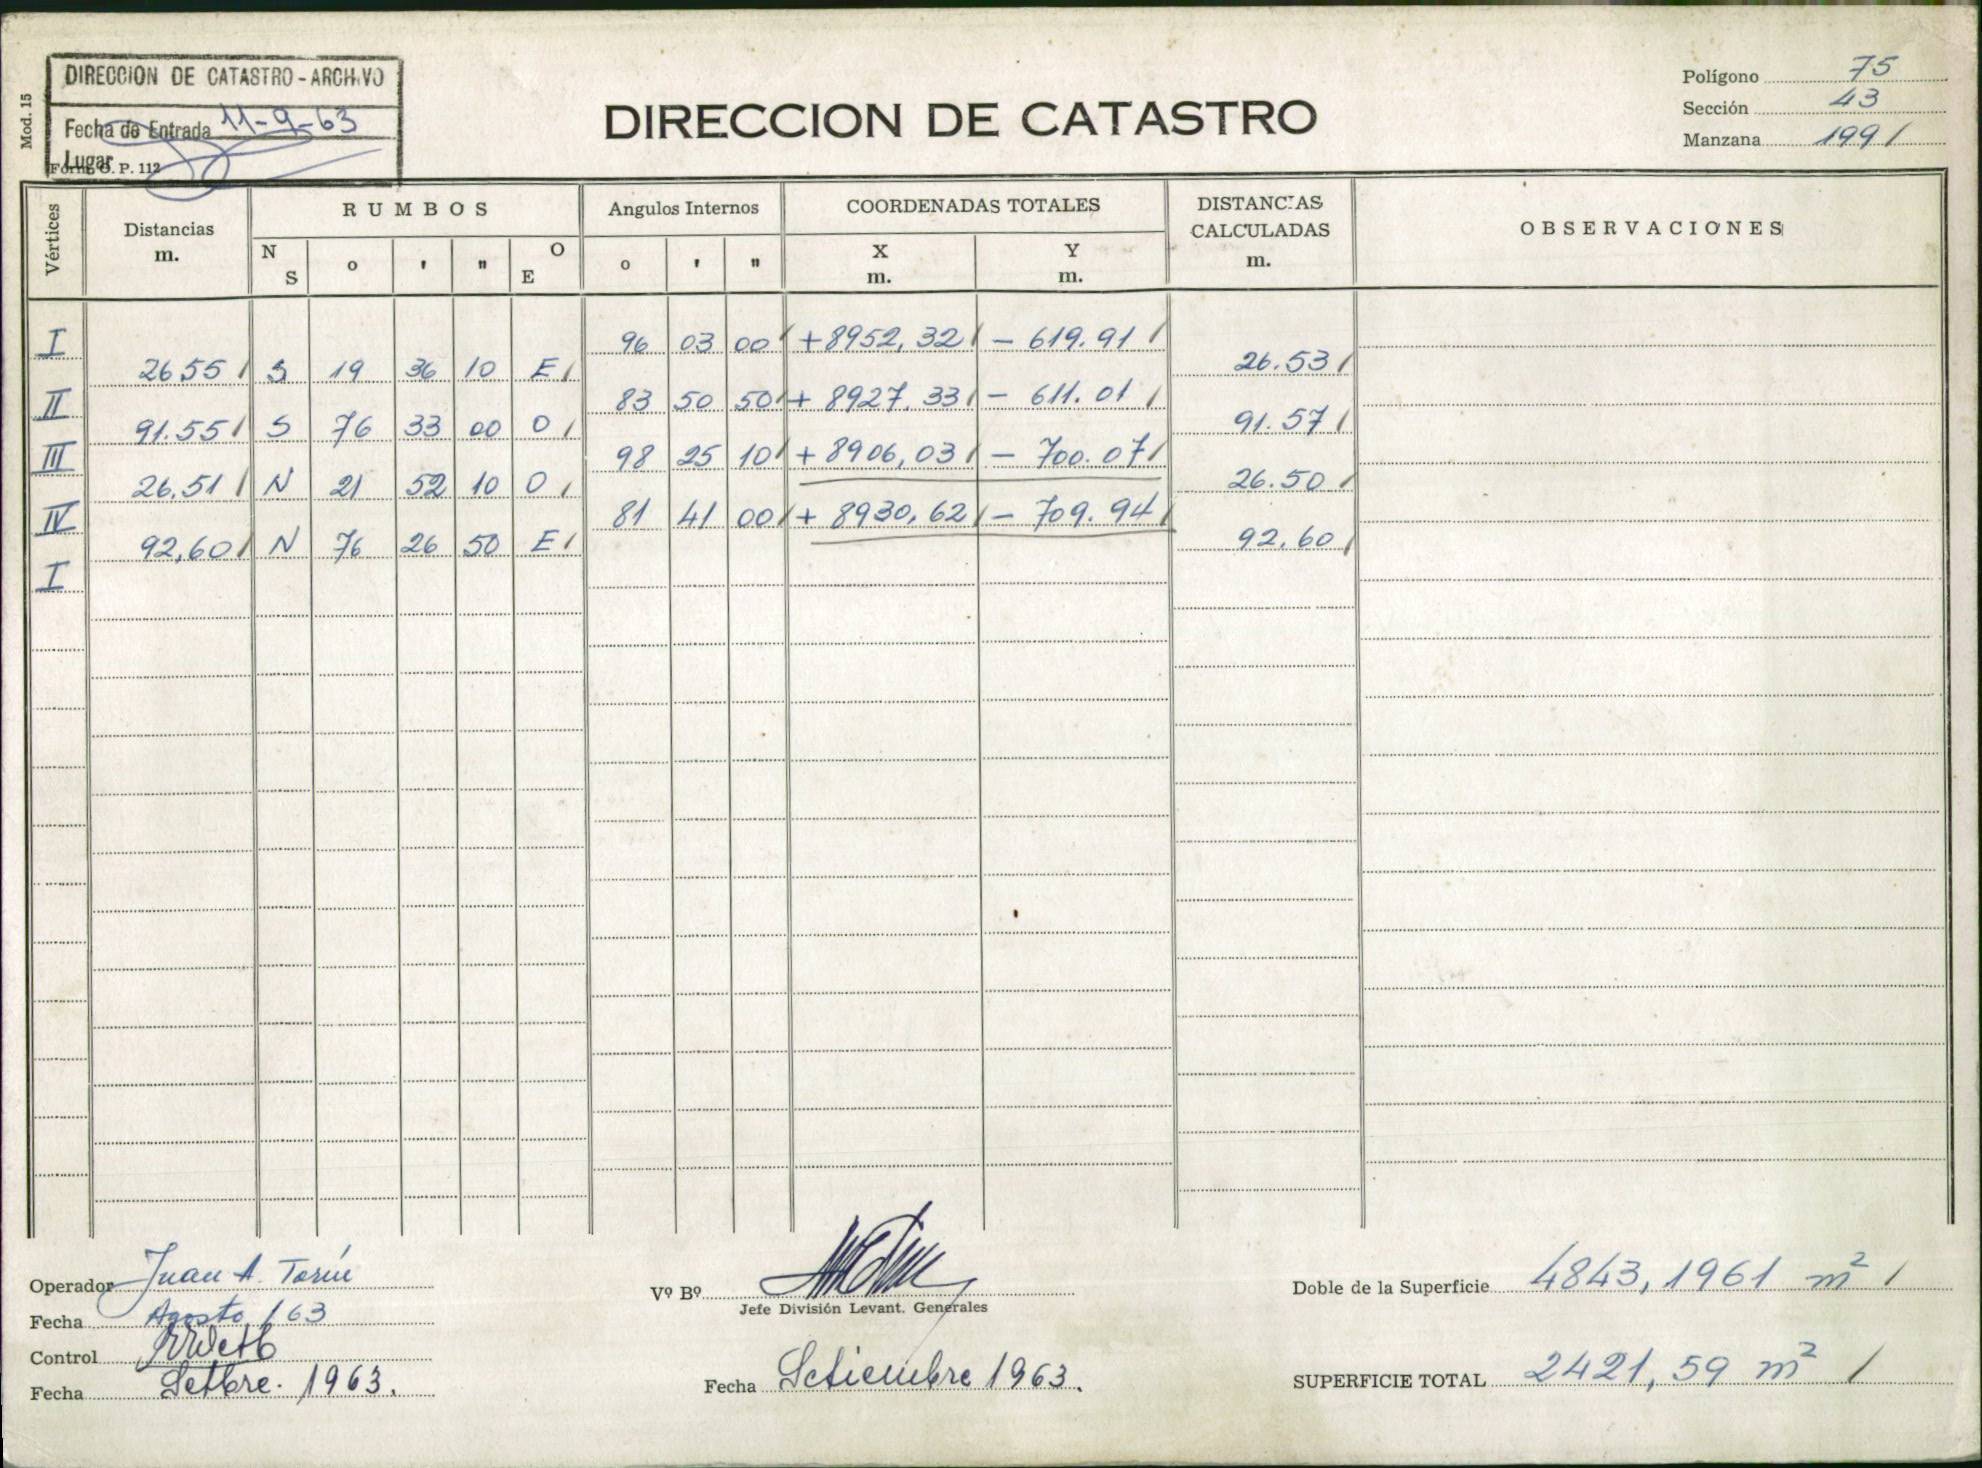 DIRECCION DE CATASTRO - ARCHIVO
Fecha de Entrada 11-9-63
Lugar
Form. O. P. 112
Mod. 15
DIRECCION DE CATASTRO
Polígono 75
Sección 43
Manzana 199 /
Vértices
Distancias m.
RUMBOS
N S o ' " O E
Angulos Internos
o ' "
COORDENADAS TOTALES
X m. Y m.
DISTANCIAS CALCULADAS m.
OBSERVACIONES
I 96 03 00 / +8952,32 / - 619.91 /
26.55 / S 19 36 10 E / 26.53 /
II 83 50 50 / + 8927.33 / - 611.01 /
91.55 / S 76 33 00 O / 91.57 /
III 98 25 10 / + 8906,03 / - 700.07 /
26,51 / N 21 52 10 O / 26.50 /
IV 81 41 00 / + 8930,62 / - 709.94 /
92,60 / N 76 26 50 E / 92.60 /
I
Operador Juan A.
Fecha Agosto /63
Control
Fecha Setbre. 1963.
Vº Bº
Jefe División Levant. Generales
Fecha Setiembre 1963.
Doble de la Superficie 4843,1961 m² /
SUPERFICIE TOTAL 2421,59 m² /